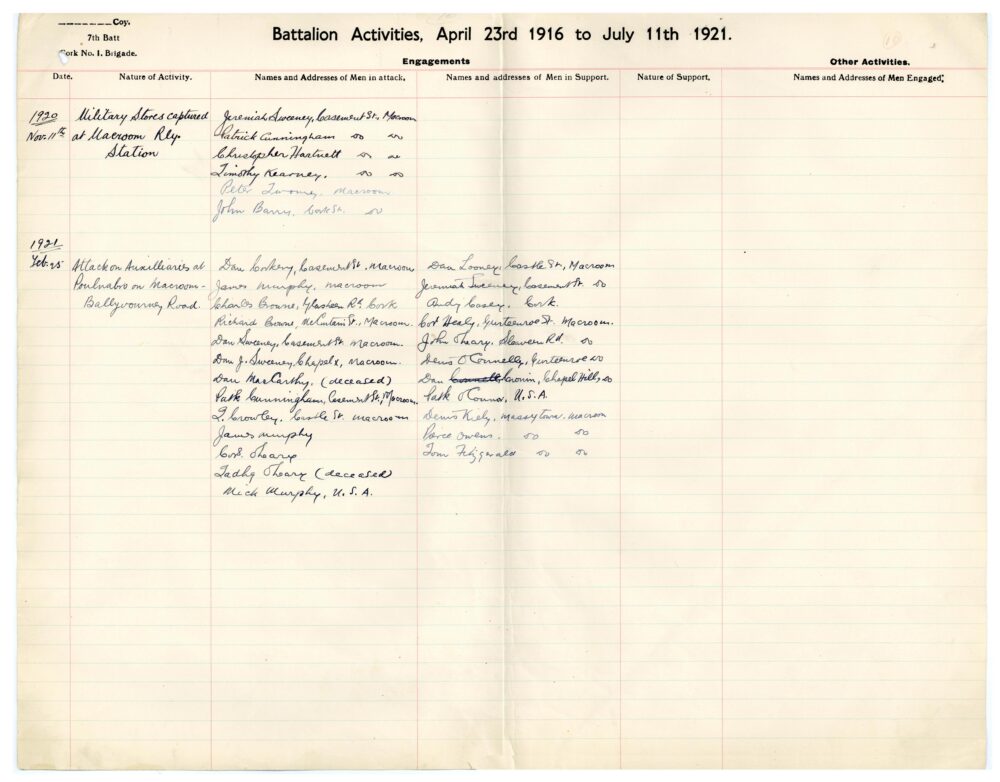 Coy.
7th Batt
Cork No. 1. Brigade.
Battalion Activities, April 23rd 1916 to July 11th 1921.
Engagements
Other Activities.
Date.
Nature of Activity.
Names and Addresses of Men in attack.
Names and addresses of Men in Support.
Nature of Support.
Names and Addresses of Men Engaged;
1920
Nov. 11th
Military Stores captured
at Macroom Rly.
Station
Jeremiah Sweeney, Casement St. Macroom
Patrick Cunningham do do
Christopher Hartnett do do
Timothy Kearney. do do
Peter Twomey, Macroom
John Barry, Cork St. do
1921
Feb. 25
Attack on Auxilliaries at
Poulnabro on Macroom-
Ballyvourney Road.
Dan Corkery, Casement St., Macroom
James Murphy, Macroom
Charles Browne, Glasheen Rd. Cork
Richard Browne, McCurtain St., Macroom.
Dan Sweeney, Casement St. Macroom.
Dan J. Sweeney, Chapel, Macroom.
Dan MacCarthy, (deceased)
Patk Cunningham, Casement St., Macroom.
Crowley, Castle St. Macroom
James Murphy
Corl. O'Leary
Tadhg O'Leary (deceased)
Mick Murphy, U.S.A.
Dan Looney, Castle St., Macroom
Jeremiah Sweeney, Casement St. do
Andy Casey, Cork.
Cor Healy, Gurteenroe St. Macroom.
John O'Leary, Sleaveen Rd. do
Denis O'Connelly, Gurteenroe do
Dan Connell Cronin, Chapel Hill, do
Patk O'Connor, U.S.A.
Denis Kiely, Massytown, Macroom
Pierce Owens. do do
Tom Fitzgerald do do